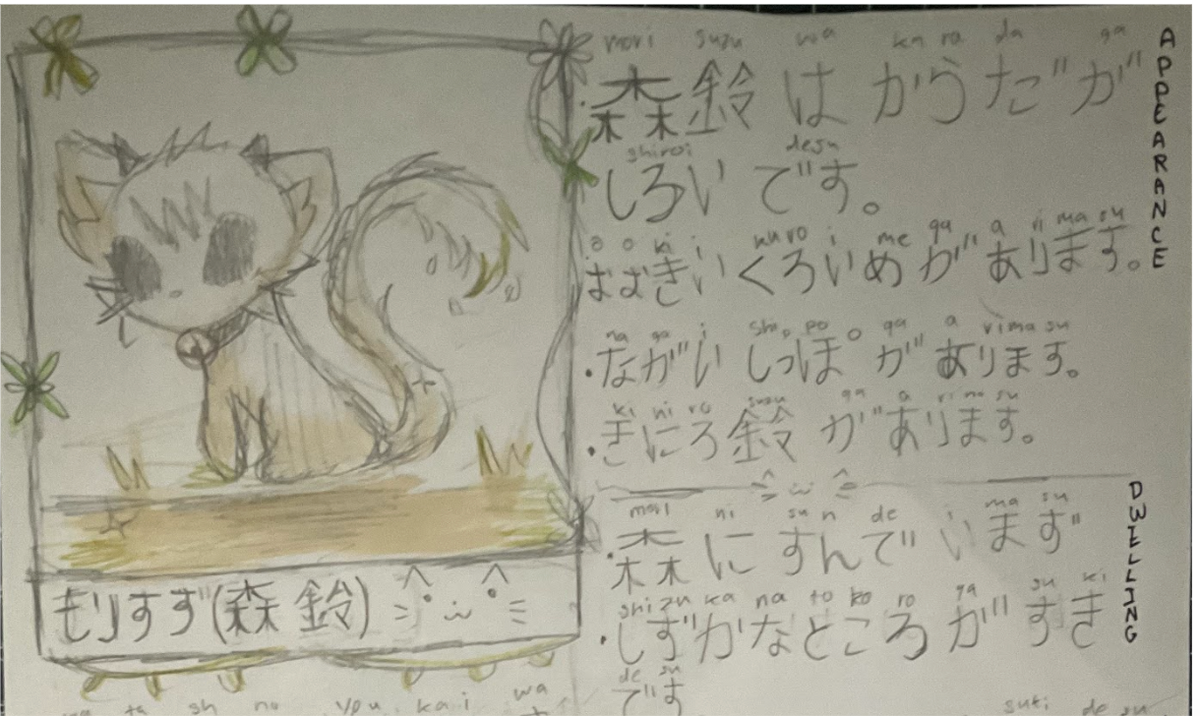 mori suzu wa ka ra da ga
・森鈴 は からだが
shiroi desu
しろい です。
o o ki i kuro i me ga a ri ma su
おおきい くろい め が あります。
na ga i shi, po ga a rima su
・ながい しっぽ が あります。
ki ni ro suzu ga a ri ma su
・きにろ 鈴 が あります。
APPEARANCE
mori ni su n de i ma su
・森 に すんで いまず
shizu ka na to ko ro ga su ki
・しずかなところ が すき
de su
です
DWELLING
もりすず(森鈴)
no you kai wa
de su